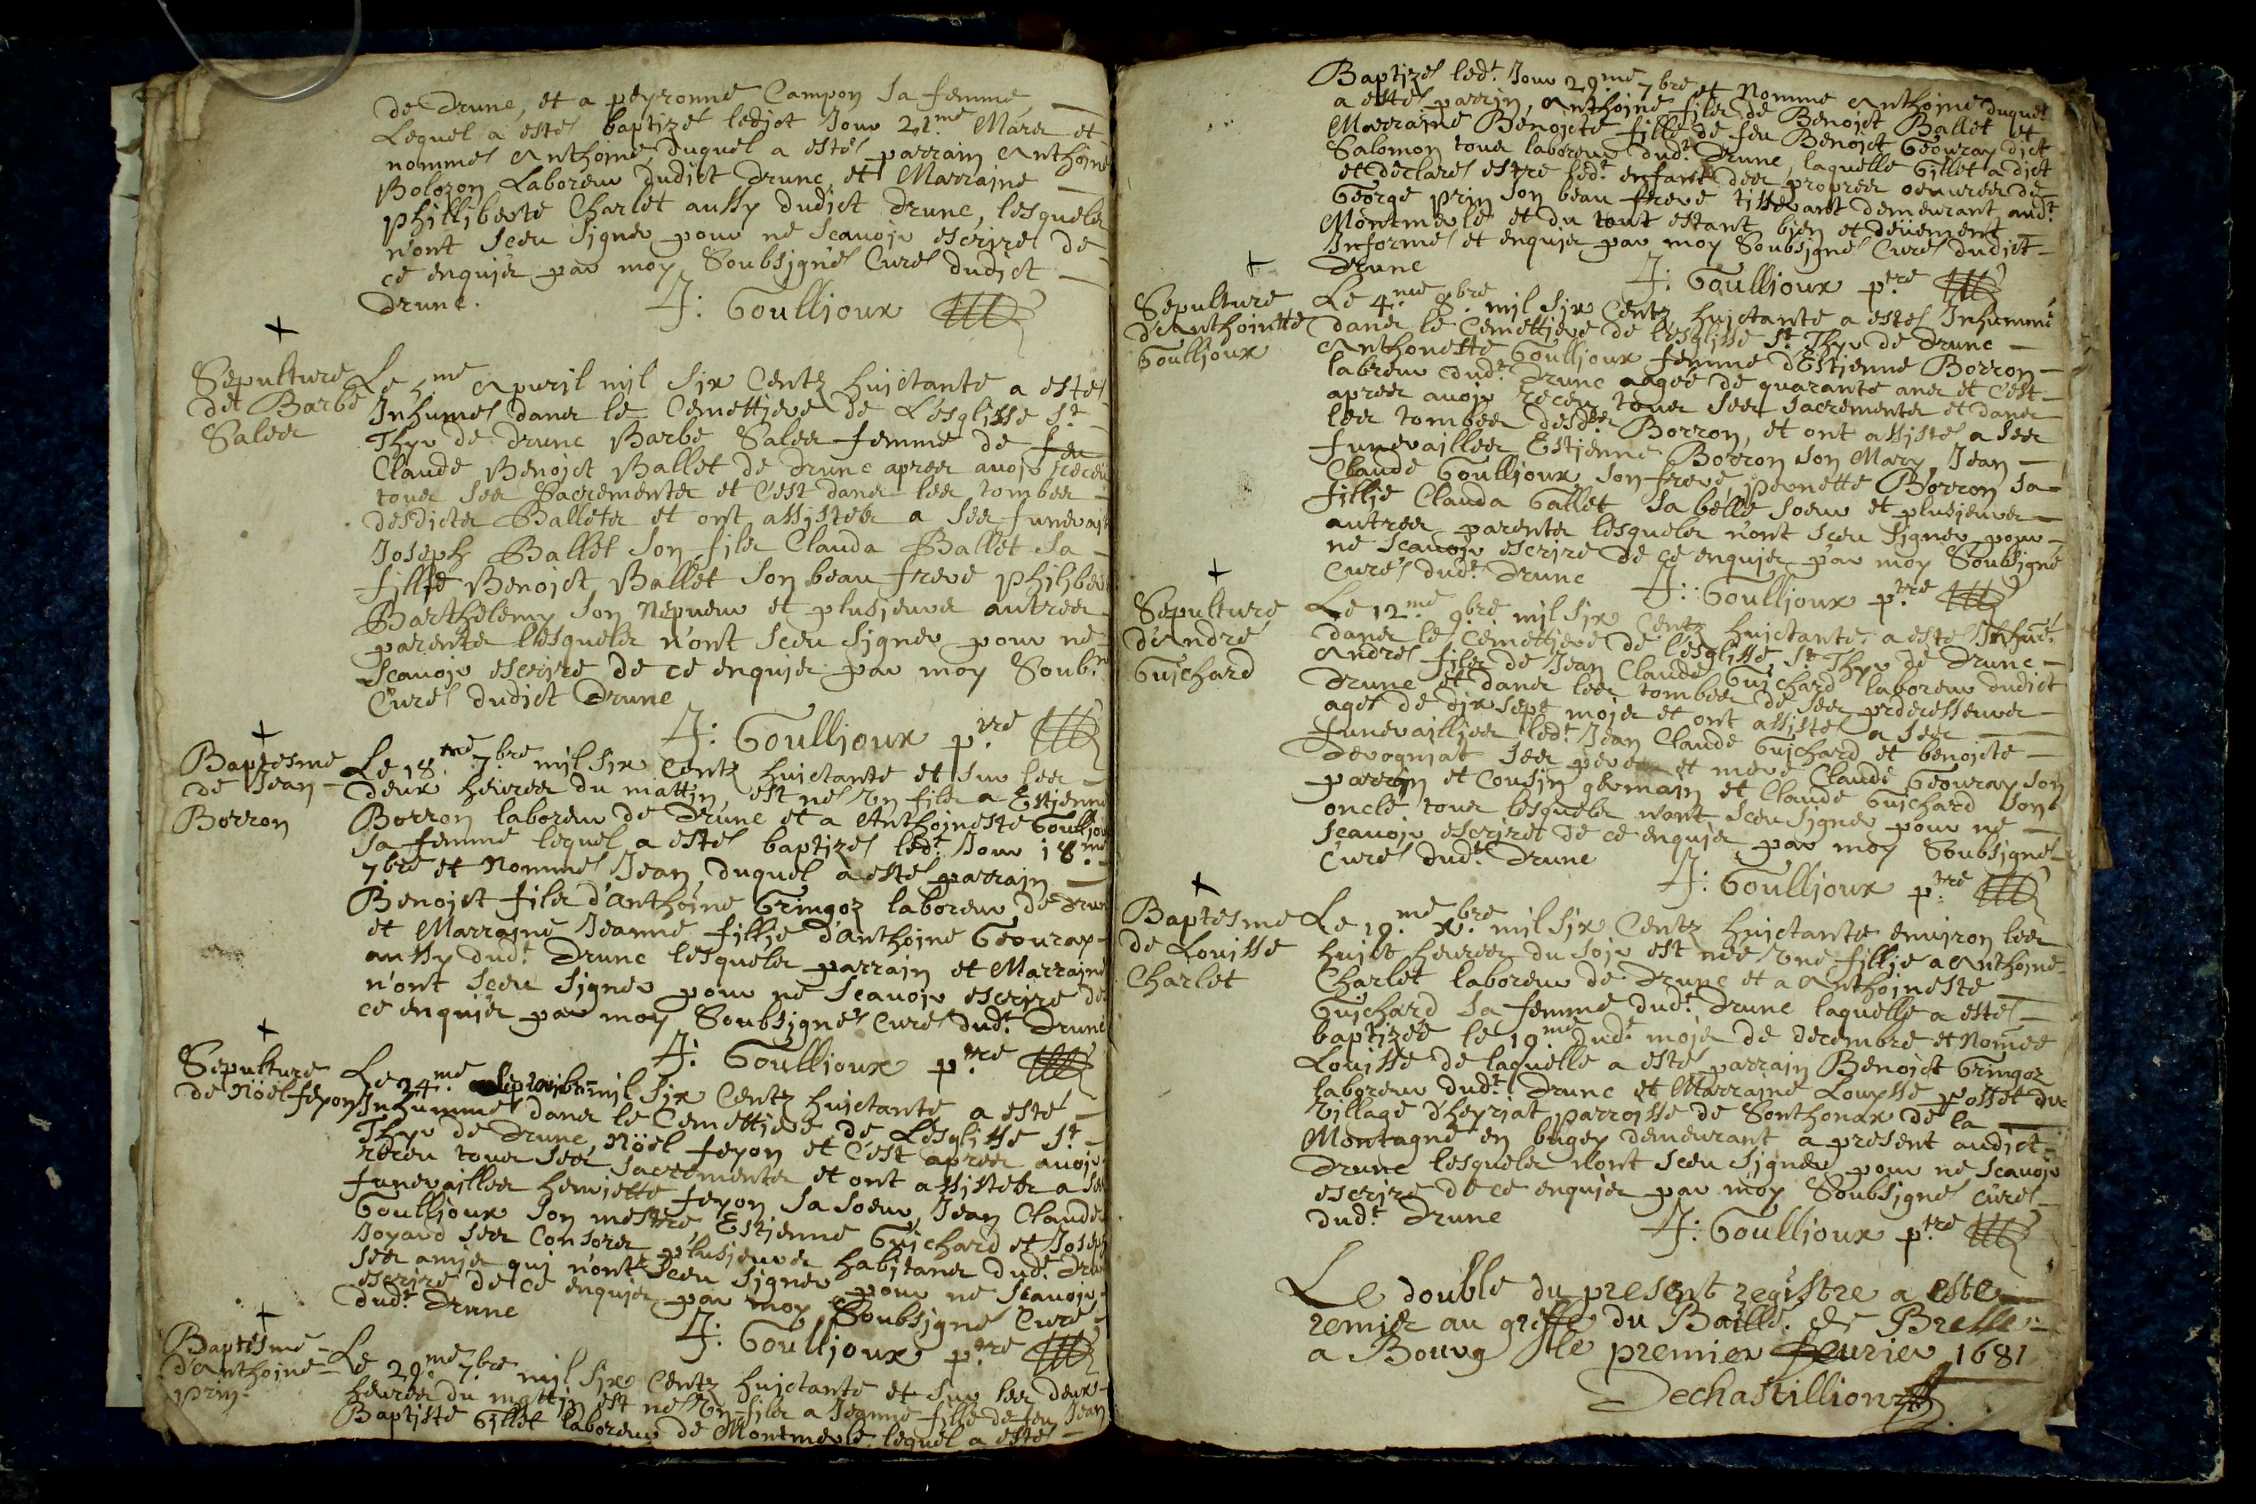 de Drune, et a peyronne Campon sa femme
Lequel a esté baptizé ledict Jour 21.me Mars et
nommé Anthoine, duquel a esté parrain Anthoine
Bolozon Laboreur dudict Drune, et Marraine
philliberte Charlet aussy dudict Drune, lesquels
n'ont sceu signer pour ne scavoir escrire de
ce enquis par moy Soubsigné Curé dudict
Drune.
A: Goullioux
Sepulture
de Barbe
Sales
Le me Apvril mil six Centz huictante a esté
Inhumée dans le Cemettiere de L'esglisse St
Thyr de Drune Barbe Sales femme de feu
Claude Benoict Ballet de Drune apres avoir receu
tous ses Sacrements et c'est dans les tombes
desdicts Ballets et ont assistés a ses funeraill
Joseph Ballet son fils Clauda Ballet sa
fillie Benoict Ballet son beau frere Philiber
Barthelemy son Nepveur et plusieurs autres
parents lesquels n'ont sceu signer pour ne
scavoir escrire de ce enquis par moy Soub.né
Curé dudict Drune
A: Goullioux p.tre
Baptesme
de Jean
Borron
Le 18.me 7.bre mil six Centz huictante et sur les
deux heures du mattin est né un fils a Estienne
Borron laboreur de Drune et a Anthoineste Goulliou
sa femme lequel a esté baptizé led.t Jour 18.me
7.bre et Nommé Jean, duquel a esté parrain
Benoict fils d'anthoine Gringoz laboreur de Drune
et Marraine Jeanne fillie d'anthoine Geouray
aussy dud.t Drune lesquels parrain et Marraine
n'ont sceu signer pour ne scavoir escrire de
ce enquis par moy Soubsigné Curé dud.t Drune
A: Goullioux p.tre
Sepulture
de Nöel feyon
Le 24.me septembre mil six Centz huictante a esté
Inhummé dans le Cemettiere de L'esglisse St
Thyr de Drune Nöel feyon et c'est apres avoir
receu tous ses sacrements et ont assistés a ses
funerailles henriette feyon sa soeur, Jean Claude
Goullioux son mestre, Estienne Guichard et Joseph
Joyard ses Consors plusieurs habitans dud.t Drun
ses amis qui n'ont sceu signer pour ne scavoir
escrire de ce enquis par moy Soubsigné Curé
dud.t Drune
A: Goullioux p.tre
Baptesme
d'Anthoine
prin
Le 29.me 7.bre mil six Centz huictante et sur les deux
heures du mattin est né un fils a Jeanne fille de feu Jean
Baptiste Gillet laboreur de Montmerle lequel a esté
Baptizé led.t Jour 29.me 7.bre et Nommé Anthoine duquel
a esté parrin, Anthoine fils de Benoict Ballet et
Marraine Benoicte fille de feu Benoict Geouray dict
Salomon tous laboreur dud.t Drune, laquelle Gillet a dict
et declaré estre led.t enfant des propres oeuvres de
George prin son beau frere tisserant demeurant aud.t
Montmerle et du tout estant bien et deuement
Informé et enquis par moy Soubsigné Curé dudict
Drune
A: Goullioux p.tre
Sepulture
d'Anthoinette
Goullioux
Le 4.me 8.bre mil six Centz huictante a esté Inhummé
dans le Cemettiere de l'esglisse St Thyr de Drune
Anthoneste Goullioux femme d'Estienne Borron
labreur dud.t Drune aagée de quarante ans et c'est
apres avoir receu tous ses sacrements et dans
les tombes desd.ts Borron, et ont assisté a ses
funerailles Estienne Borron son Mary, Jean
Claude Goullioux son frere pernette Borron sa
fillie Clauda Gallet sa belle soeur et plusieurs
autres parents lesquels n'ont sceu signer pour
ne scavoir escrire de ce enquis par moy Soubsigné
Curé dud.t Drune
A: Goullioux p.tre
Sepulture
d'André
Guichard
Le 12.me 9.bre mil six Centz huictante a esté Inhumé
dans le Cemettiere de l'esglisse St Thyr de Drune
André fils de Jean Claude Guichard laboreur dudict
Drune et dans les tombes de ses predecesseurs
agé de dix sept mois et ont assisté a ses
funerailles led.t Jean Claude Guichard et benoicte
Derogniat ses pere et mere Claude Geouray son
parrain et Cousin germain et Claude Guichard son
oncle tous lesquels n'ont sceu signer pour ne
scavoir escrire de ce enquis par moy Soubsigné
Curé dud.t Drune
A: Goullioux p.tre
Baptesme
de Louisse
Charlet
Le 19.me X.bre mil six Centz huictante environ les
huict heures du soir est née une fillie a Anthoine
Charlet laboreur de Drune et a Anthoineste
Guichard sa femme dud.t Drune laquelle a esté
baptizée le 19.me dud.t mois de decembre et Nomée
Louisse de laquelle a esté parrain Benoict Gringoz
laboreur dud.t Drune et Marraine Louysse posset du
village d'heyriat parroisse de Sonthonax de la
Montagne en bugey demeurant a present audict
Drune lesquels n'ont sceu signer pour ne scavoir
escrire de ce enquis par moy Soubsigné Curé
dud.t Drune
A: Goullioux p.tre
Le double du present registre a este
remis au greffe du Baille. de Bresse
a Bourg le premier feurier 1681
Dechastillion